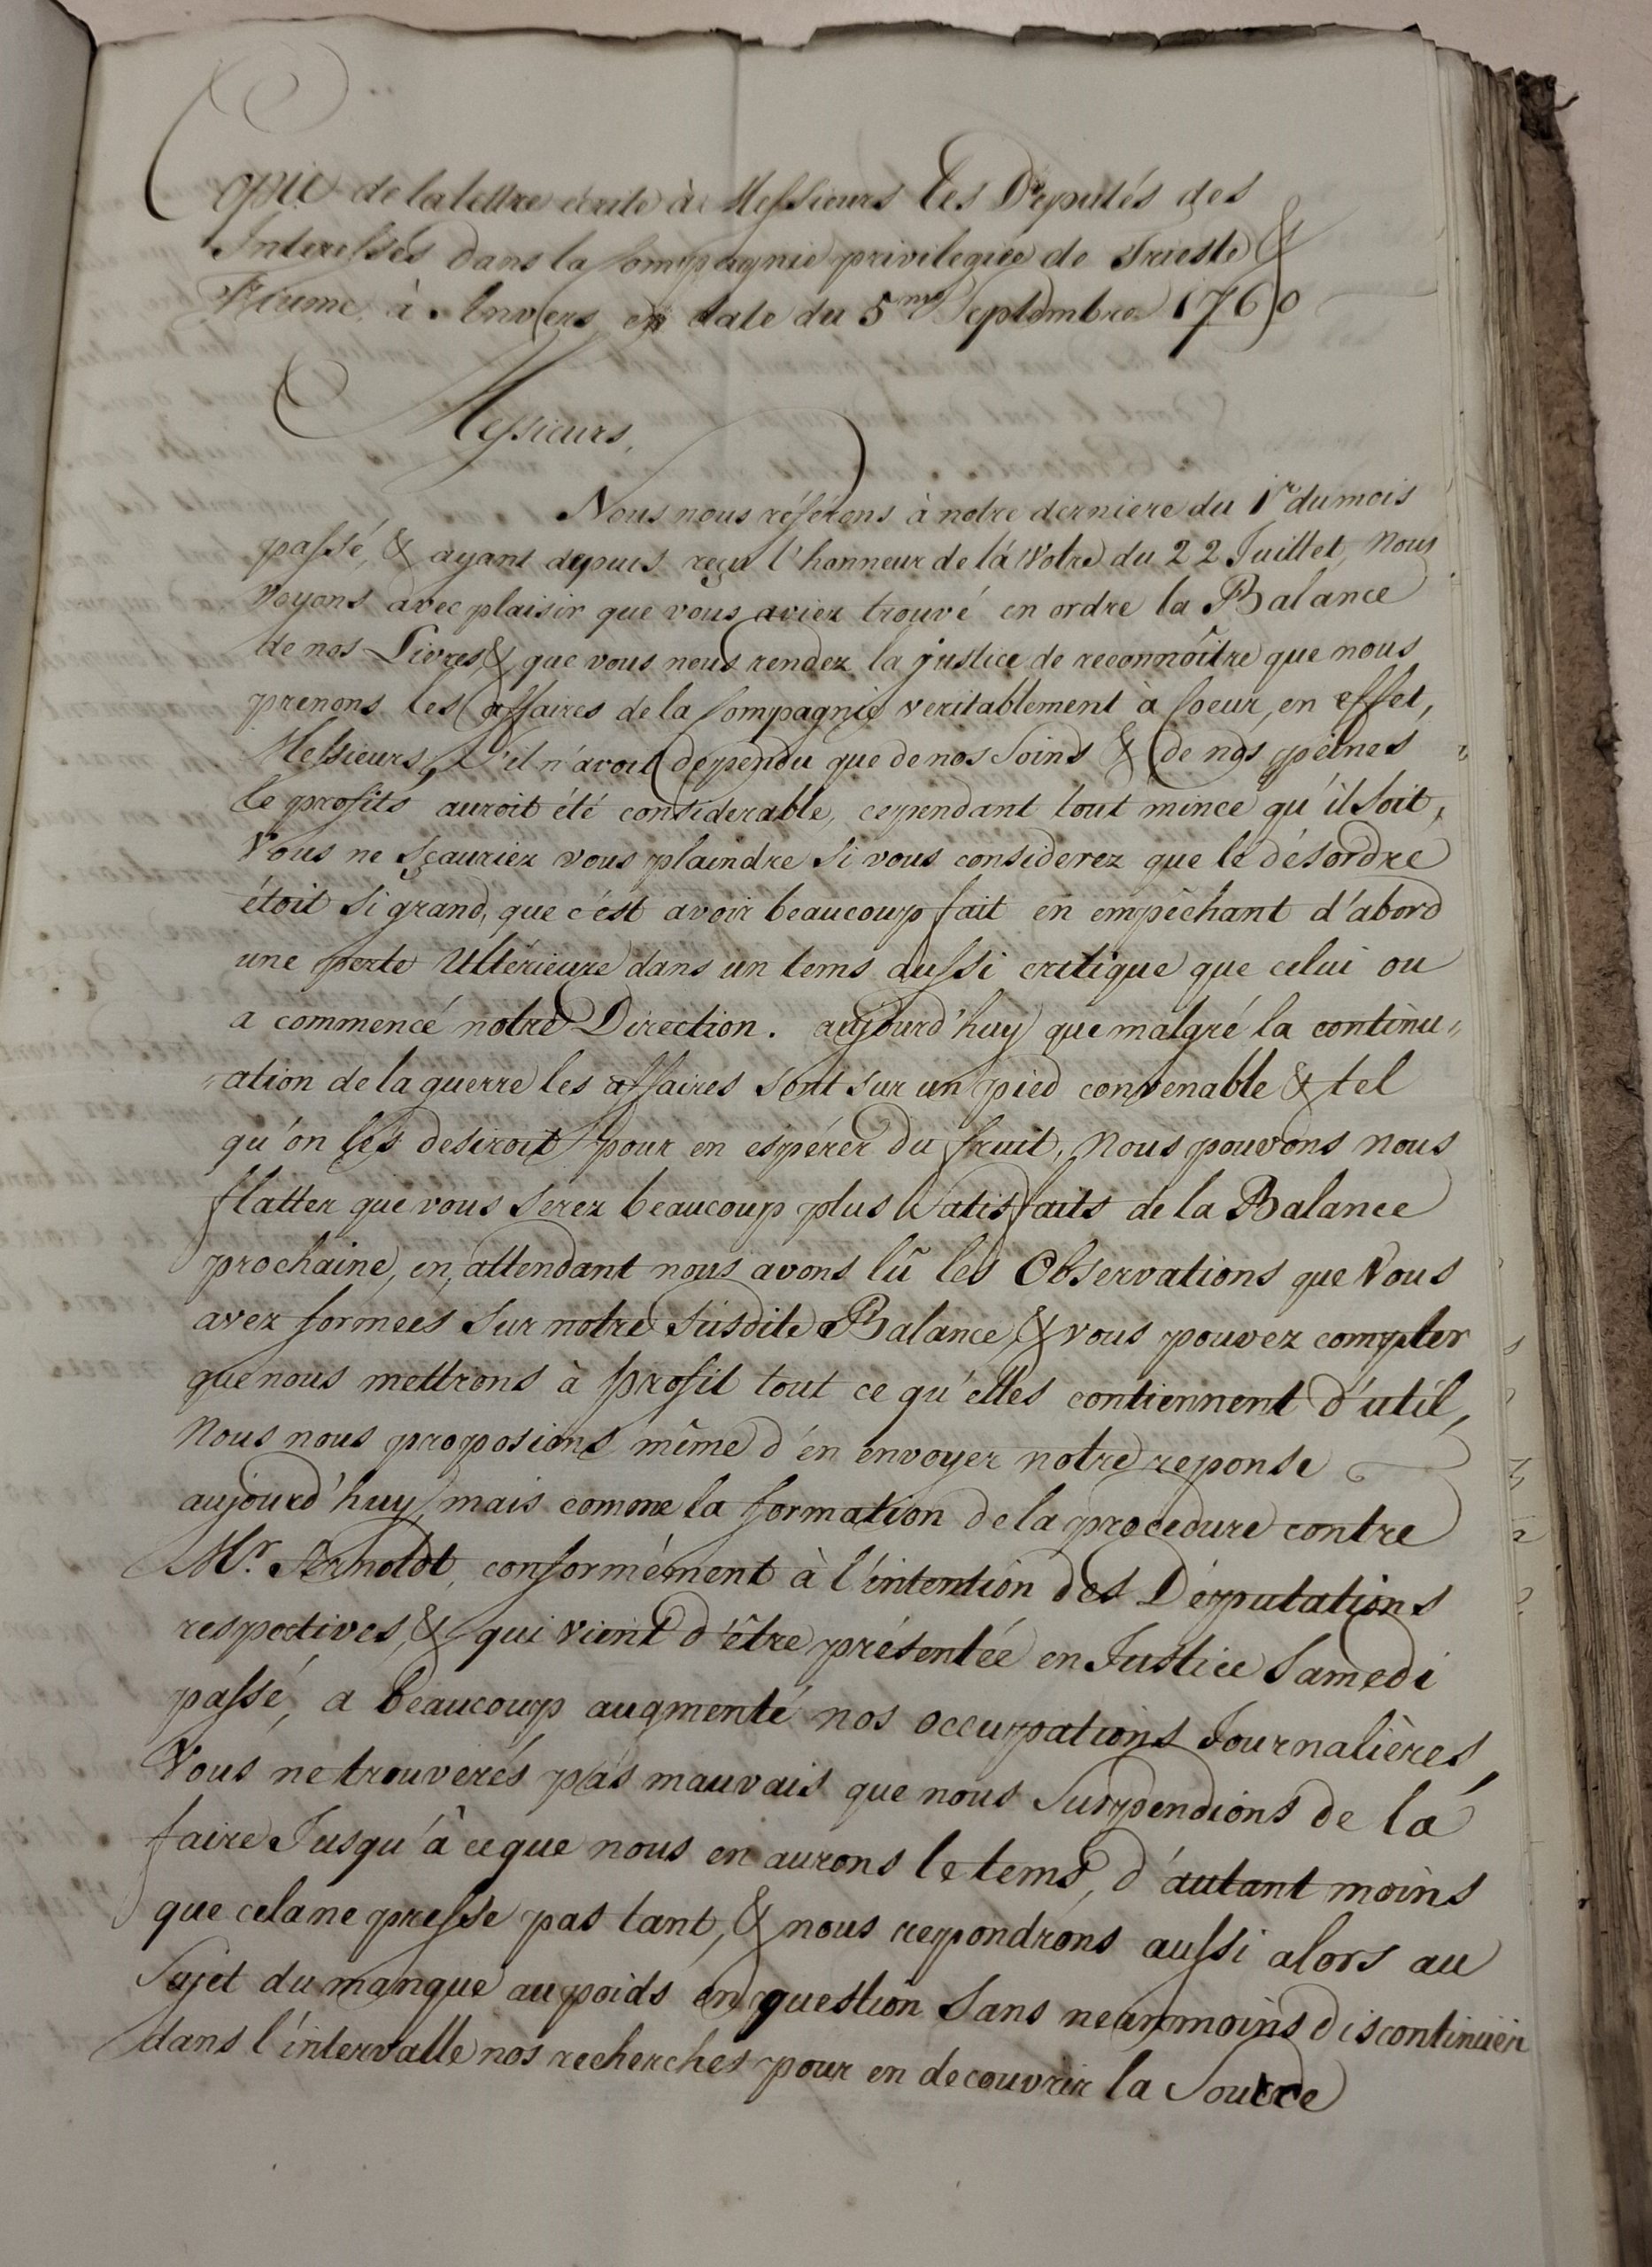 Copie de la lettre écrite à Messieurs Les Députés des
Interessés dans la Compagnie privilegiée de Trieste &
Fiume, à Anvers en date du 5me Septembre 1760
Messieurs,
Nous nous référons à notre derniere du 1r du mois
passé, & ayant depuis reçu l'honneur de la Votre du 22 Juillet, Nous
Voyons avec plaisir que vous aviez trouvé en ordre la Balance
de nos Livres, & que vous nous rendez la justice de reconnôitre que nous
prenons les affaires de la Compagnie veritablement à Coeur, en effet,
Messieurs, S'il n'avoit dependu que de nos Soins & de nos peines
le profits auroit été considerable, cependant tout mince qu'il soit,
Vous ne sçauriez vous plaindre Si vous considerez que le désordre
étoit Si grand, que c'est avoir beaucoup fait en empêchant d'abord
une perte Ultérieure dans un tems aussi critique que celui ou
a commencé notre Direction. aujourd'huy que malgré la continu„
„ation de la guerre les affaires sont sur un pied convenable & tel
qu'on les desiroit pour en espérer du fruit, Nous pouvons nous
flatter que vous serez beaucoup plus Satisfaits de la Balance
prochaine, en attendant nous avons lû les Observations que Vous
avez formees Sur notre Susdite Balance, & vous pouvez compter
que nous mettrons à profit tout ce qu'elles contiennent d'util,
Nous nous proposions même d'en envoyer notre reponse
aujourd'huy, mais comme la formation de la procedure contre
Mr. Arnoldt, conformément à l'intention des Députations
respectives, & qui vient d'être présentée en Justice Samedi
passé, a beaucoup augmenté nos occupations Journalières,
Vous ne trouverés pas mauvais que nous Suspendions de la
faire Jusqu'à ce que nous en aurons le tems, d'autant moins
que cela ne presse pas tant, & nous repondrons aussi alors au
Sujet du manque au poids en question Sans neanmoins discontinuer
dans l'intervalle nos recherches pour en decouvrir la Source